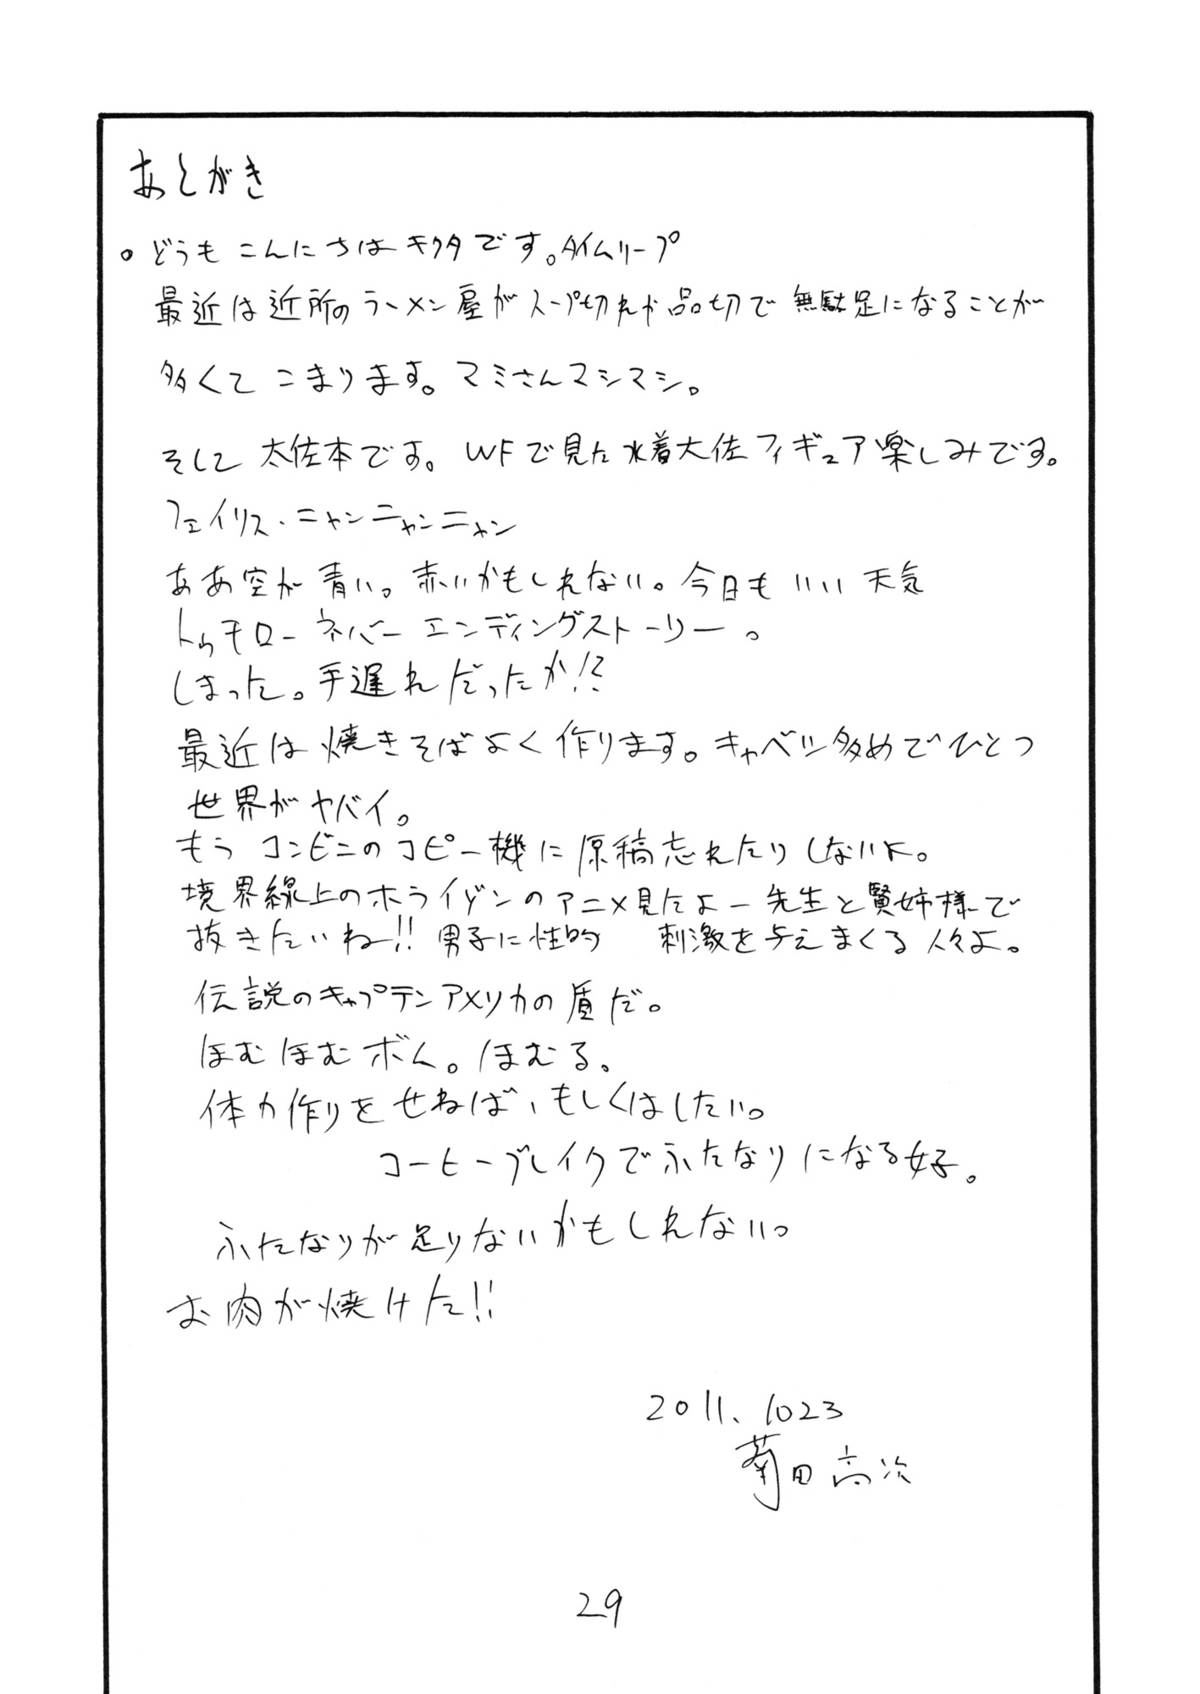 あとがき
。どうも こんにちは キクタです。タイムリープ
最近は近所のラーメン屋がスープ切れか品切で 無駄足になることが
多くて こまります。マミさんマシマシ。
そして 大佐本です。WFで見た水着大佐フィギュア楽しみです。
フェイリス・ニャンニャンニャン
ああ空が青い。赤いかもしれない。今日もいい天気
トゥモローネバーエンディングストーリー。
しまった。手遅れだったか!?
最近は焼きそばよく作ります。キャベツ多めでひとつ
世界がヤバイ。
もう コンビニのコピー機に原稿忘れたりしないよ。
境界線上のホライゾンのアニメ見たよー先生と賢姉様で
抜きたいね!! 男子に性的 刺激を与えまくる人々よ。
伝説のキャプテンアメリカの盾だ。
ほむほむボム。ほむる。
体力作りをせねば、もしくはしたい。
コーヒーブレイクでふたなりになる女子。
ふたなりが足りないかもしれない。
お肉が焼けた!!
2011、1023
菊田高次
29